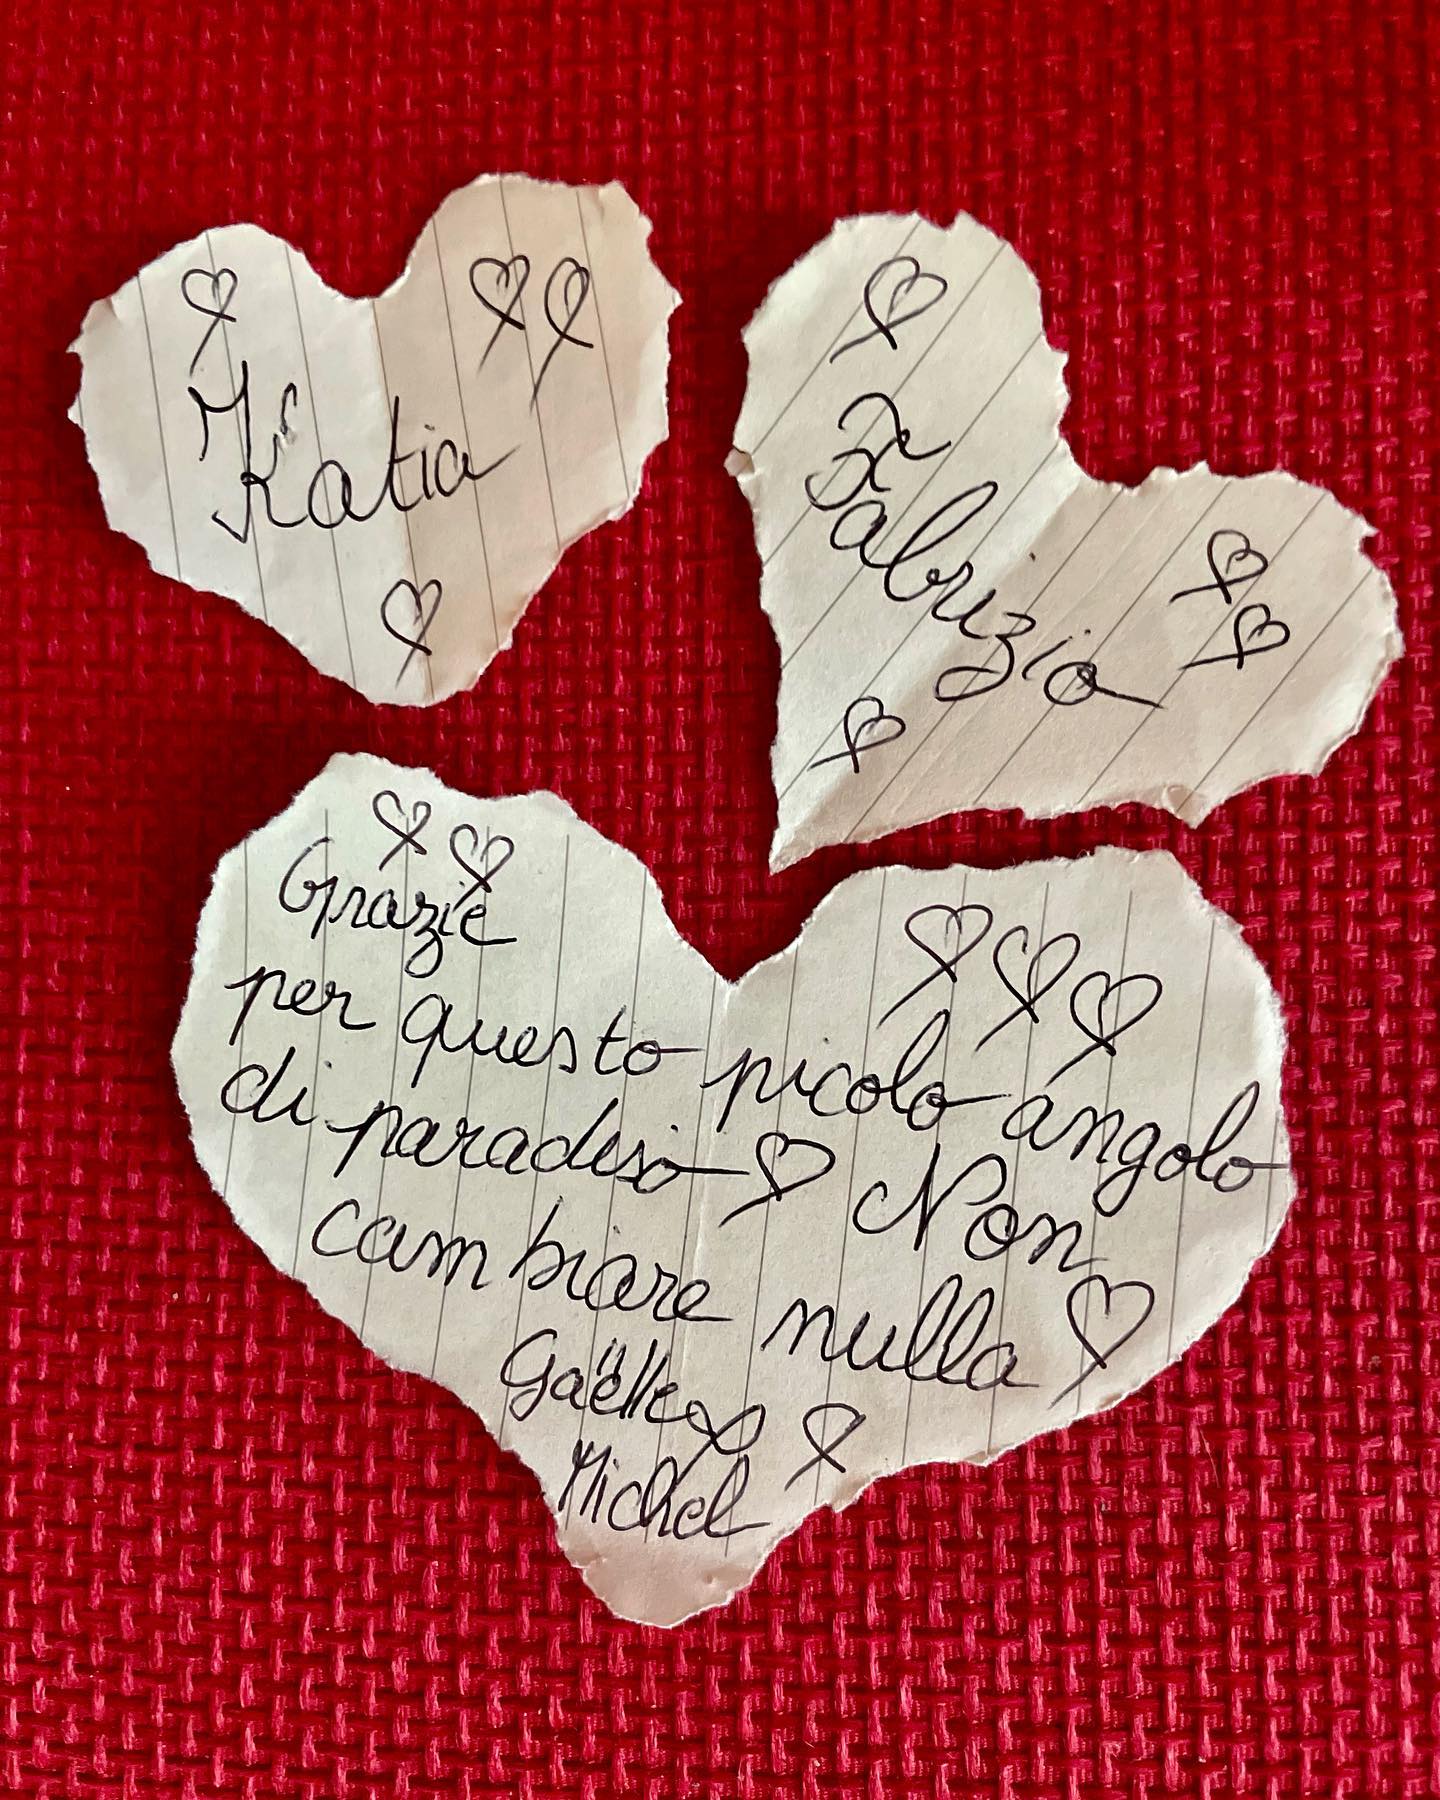 Katia
Fabrizio
Grazie
per questo picolo angolo
di paradiso Non
cambiare nulla
Gaëlle
Michel